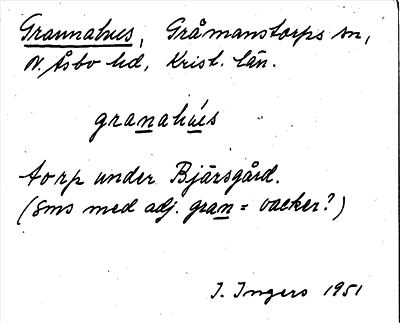 Grannahus, Gråmanstorps sn,
N. Åsbo hd, Krist. län.
granahús
torp under Bjärsgård.
(sms med adj. gran = vacker?)
I. Ingers 1951